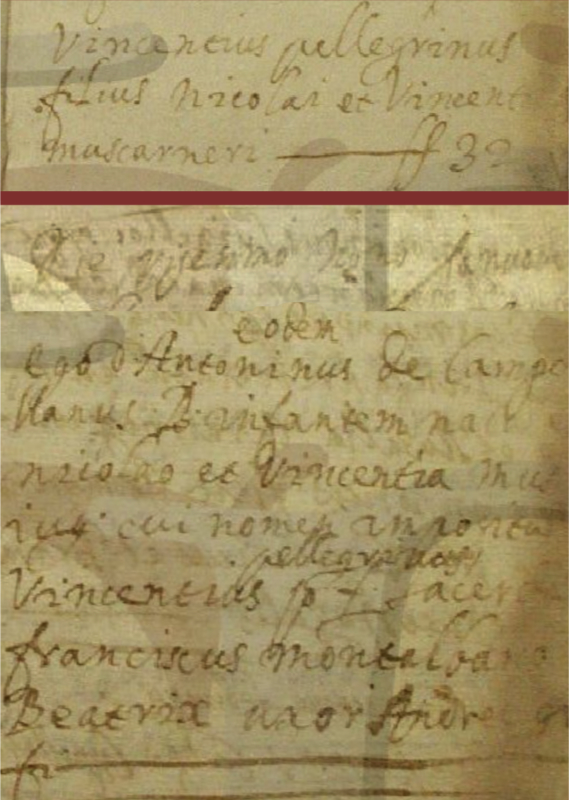 Vincentius pellegrinus
filius Nicolai et Vincent
muscarneri ff 32
Die
eodem
Ego D. Antoninus de Campo
llanus B. infantem nat
nicolao et Vincentia Mu
iug. cui nomen impositu
pellegrinus
Vincentius p. f.
franciscus montalbano
Beatrix uxor Andre